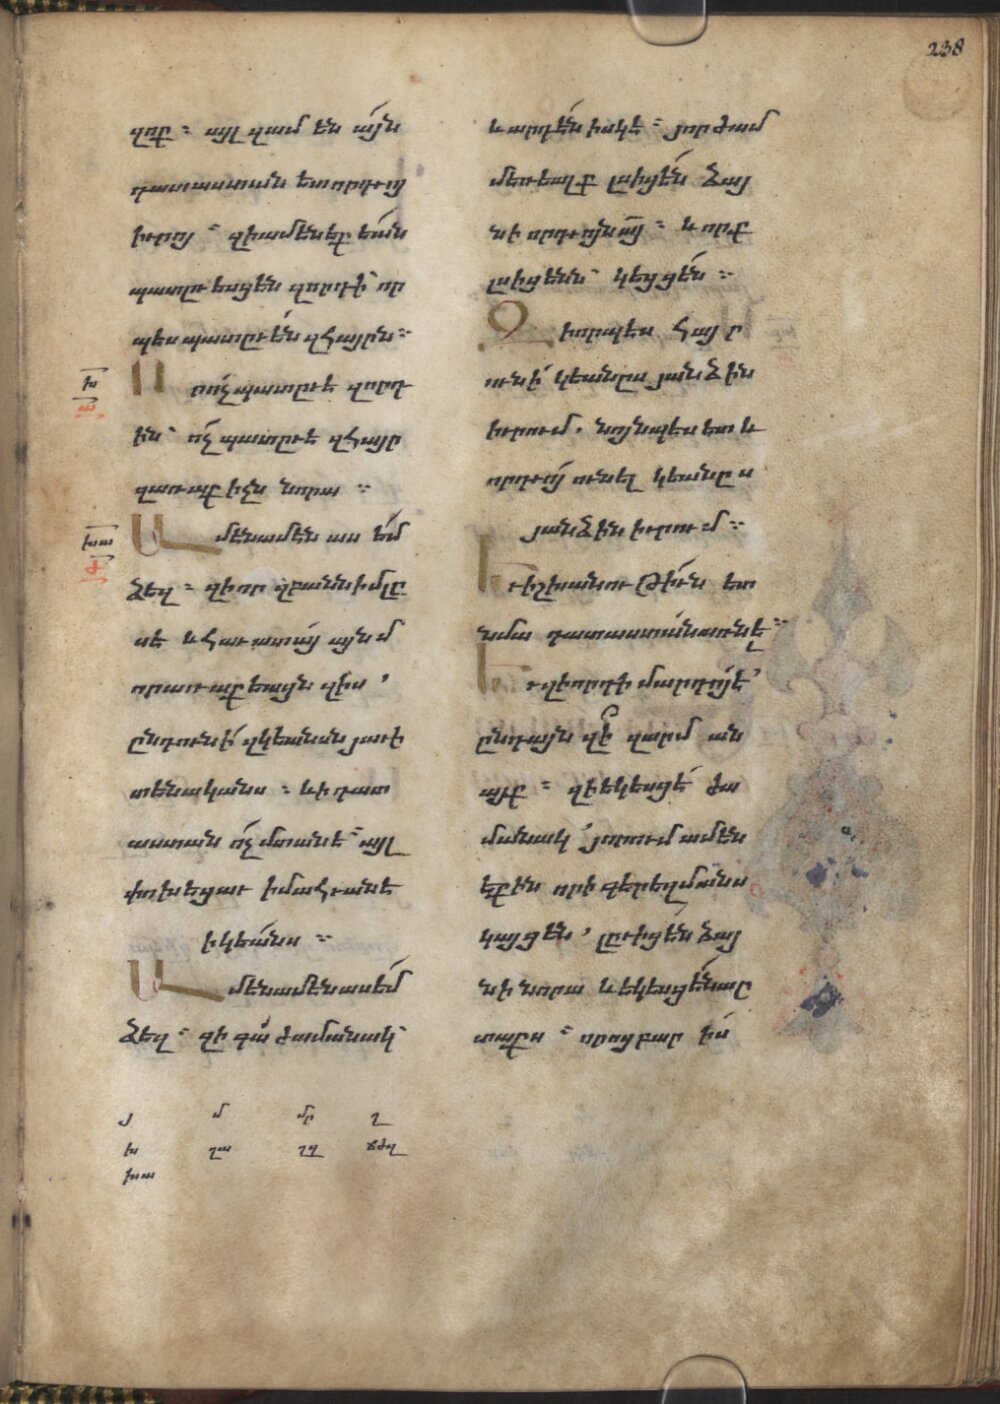 238
զոք ։ այլ զամ են այն
դատաստան ետ որդւոյ
իւրոյ ՝ զի ամենեքեան
պատըւեսցեն զորդի՝ որ
պէս պատըւեն զհայրն ։
խ
Ո ր ոչ պատըւէ զորդ
ին՝ ոչ պատըւէ զհայր
զառաքիչն նորա ։
խա
Ա մէն ամէն աս եմ
ձեզ ՝ զի որ զբանն իմ լը
սէ և հաւատայ այնմ
որ առաքեացն զիս ՝
ընդունի զկեանսն յաւի
տենականս ։ և ի դատ
աստան ոչ մտանէ ՝ այլ
փոխեցաւ ի մահւանէ
ի կեանս ։
Ա մէն ամէն ասեմ
ձեզ ՝ զի գա ժամանակ՝
և արդէն իսկ է ՝ յորժամ
մեռեալք լսիցեն ձայ
նի որդւոյն այ ՝ և որք
լսիցենն՝ կեցցեն ։
Զ ի որպէս հայր
ունի կեանըս յանձին
իւրում . նոյնպէս ետ և
որդւոյ ունել կեանըս
յանձին իւրում ։
և իշխանութիւն ետ
նմա դատաստան առնել ։
և զի որդի մարդոյ է ՝
ընդ այն զի զարմ ան
այք ՝ զի եկեսցէ ժա
մանակ՝ յորում ամեն
եքին որ ի գերեզմանս
կայցեն ՝ լըւիցեն ձայ
նի նորա և եկեսցեն ար
տաքս ՝ որոյ բար իս
յ մ մր ղ
խ ղա ղզ ճժղ
խա